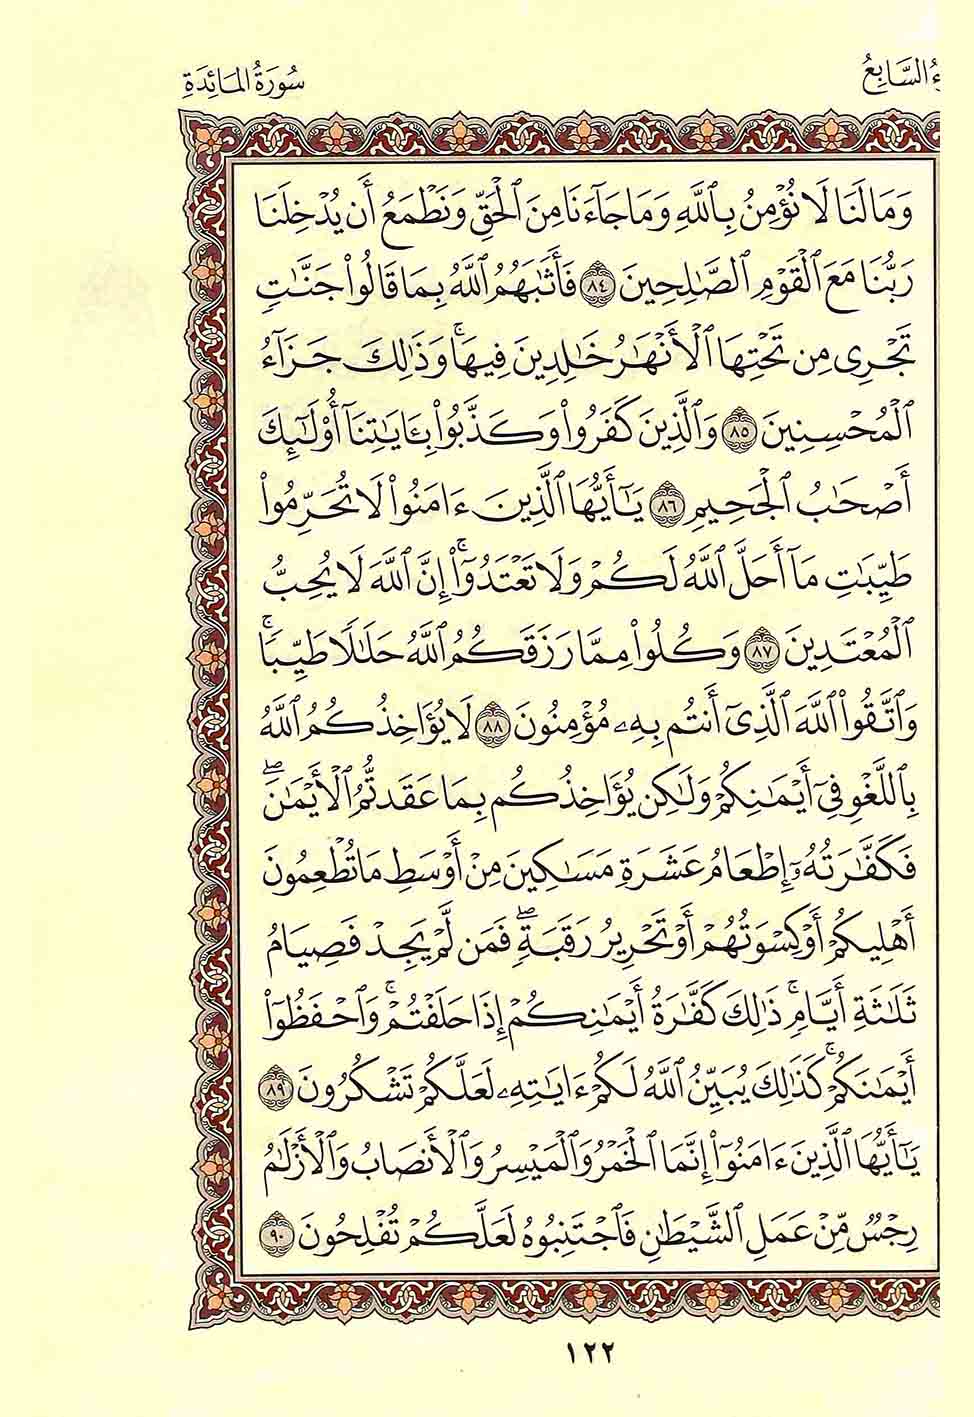 ءُ السَّابِعُ
سُورَةُ المَائِدَةِ
وَمَا لَنَا لَا نُؤْمِنُ بِٱللَّهِ وَمَا جَآءَنَا مِنَ ٱلْحَقِّ وَنَطْمَعُ أَن يُدْخِلَنَا
رَبُّنَا مَعَ ٱلْقَوْمِ ٱلصَّـٰلِحِينَ ٨٤ فَأَثَـٰبَهُمُ ٱللَّهُ بِمَا قَالُوا۟ جَنَّـٰتٍ
تَجْرِى مِن تَحْتِهَا ٱلْأَنْهَـٰرُ خَـٰلِدِينَ فِيهَا ۚ وَذَٰلِكَ جَزَآءُ
ٱلْمُحْسِنِينَ ٨٥ وَٱلَّذِينَ كَفَرُوا۟ وَكَذَّبُوا۟ بِـَٔايَـٰتِنَآ أُو۟لَـٰٓئِكَ
أَصْحَـٰبُ ٱلْجَحِيمِ ٨٦ يَـٰٓأَيُّهَا ٱلَّذِينَ ءَامَنُوا۟ لَا تُحَرِّمُوا۟
طَيِّبَـٰتِ مَآ أَحَلَّ ٱللَّهُ لَكُمْ وَلَا تَعْتَدُوٓا۟ ۚ إِنَّ ٱللَّهَ لَا يُحِبُّ
ٱلْمُعْتَدِينَ ٨٧ وَكُلُوا۟ مِمَّا رَزَقَكُمُ ٱللَّهُ حَلَـٰلًا طَيِّبًا ۚ
وَٱتَّقُوا۟ ٱللَّهَ ٱلَّذِىٓ أَنتُم بِهِۦ مُؤْمِنُونَ ٨٨ لَا يُؤَاخِذُكُمُ ٱللَّهُ
بِٱللَّغْوِ فِىٓ أَيْمَـٰنِكُمْ وَلَـٰكِن يُؤَاخِذُكُم بِمَا عَقَّدتُّمُ ٱلْأَيْمَـٰنَ ۖ
فَكَفَّـٰرَتُهُۥٓ إِطْعَامُ عَشَرَةِ مَسَـٰكِينَ مِنْ أَوْسَطِ مَا تُطْعِمُونَ
أَهْلِيكُمْ أَوْ كِسْوَتُهُمْ أَوْ تَحْرِيرُ رَقَبَةٍ ۖ فَمَن لَّمْ يَجِدْ فَصِيَامُ
ثَلَـٰثَةِ أَيَّامٍ ۚ ذَٰلِكَ كَفَّـٰرَةُ أَيْمَـٰنِكُمْ إِذَا حَلَفْتُمْ ۚ وَٱحْفَظُوٓا۟
أَيْمَـٰنَكُمْ ۚ كَذَٰلِكَ يُبَيِّنُ ٱللَّهُ لَكُمْ ءَايَـٰتِهِۦ لَعَلَّكُمْ تَشْكُرُونَ ٨٩
يَـٰٓأَيُّهَا ٱلَّذِينَ ءَامَنُوٓا۟ إِنَّمَا ٱلْخَمْرُ وَٱلْمَيْسِرُ وَٱلْأَنصَابُ وَٱلْأَزْلَـٰمُ
رِجْسٌ مِّنْ عَمَلِ ٱلشَّيْطَـٰنِ فَٱجْتَنِبُوهُ لَعَلَّكُمْ تُفْلِحُونَ ٩٠
١٢٢